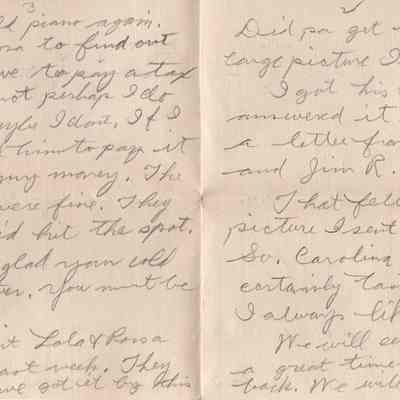 3
ld piano again.
to find out
ve to pay a tax
not perhaps I do
aybe I dont, If I
him to pay it
my money. The
were fine. They
id hit the spot.
glad your cold
er. You must be
it Lola & Rossa
last week. They
ave got it by this
2
Did pa get
large picture I
I got his
answered it
a letter from
and Jim R.
That fell
picture I sent
So. Carolina
certainly
I always lik
We will se
a great time
back. We will